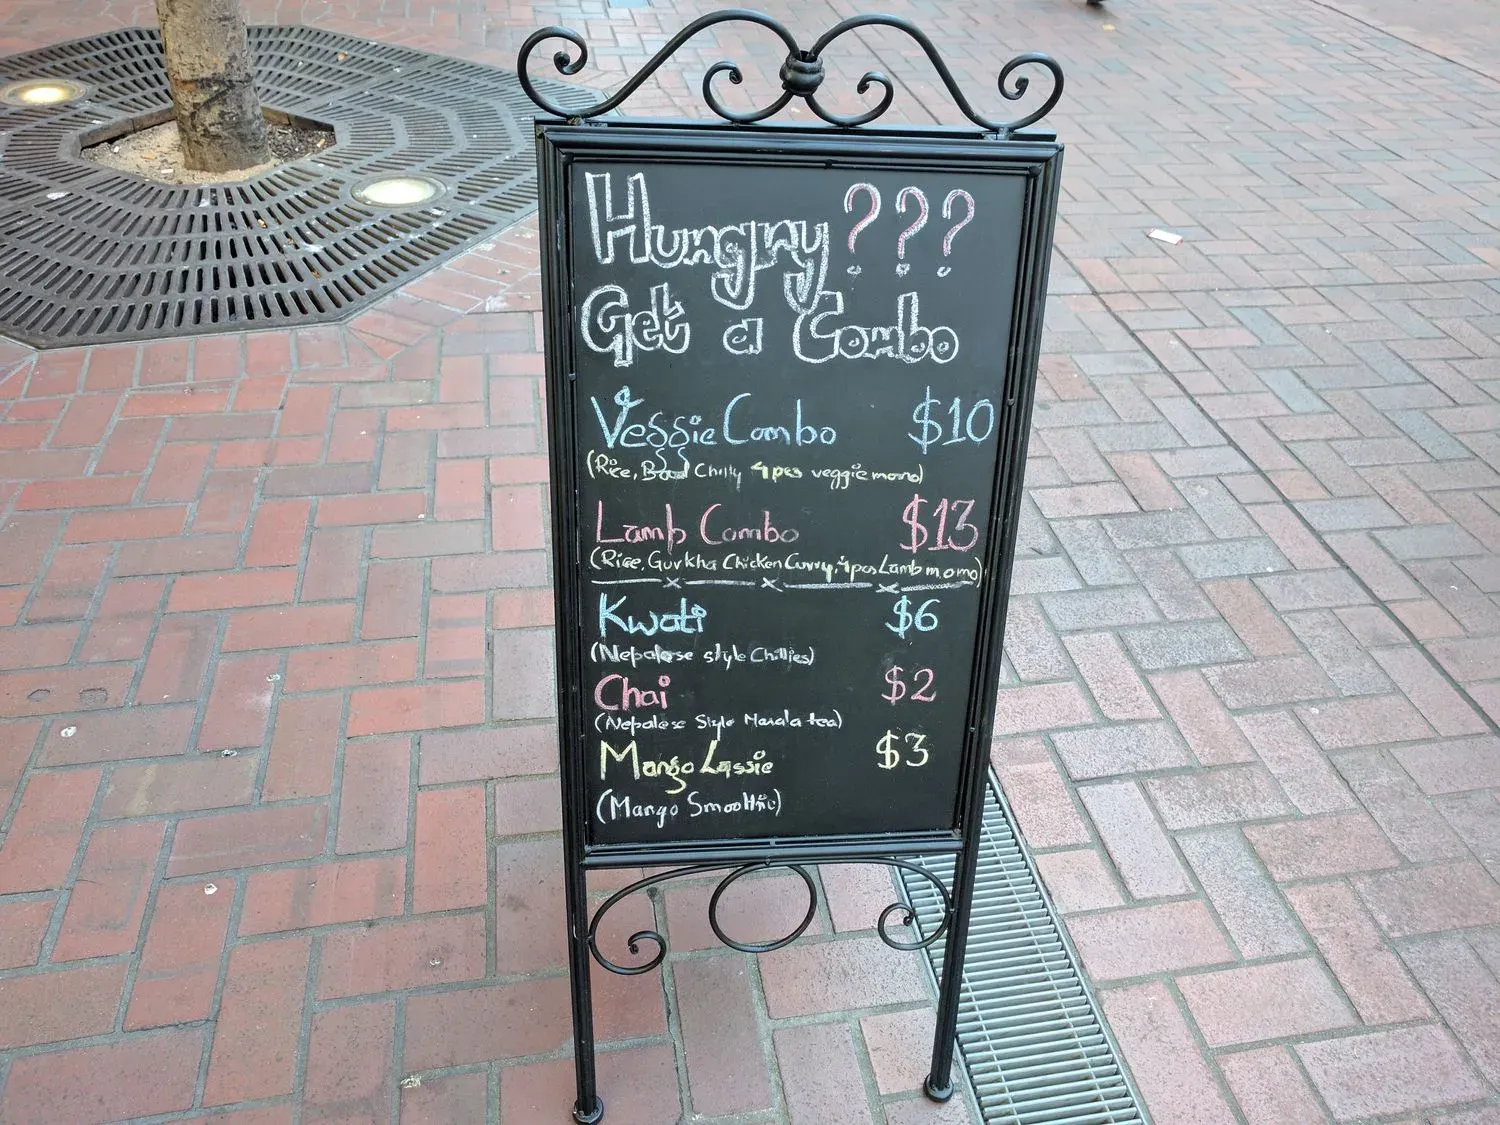 Hungry ???
Get a Combo
Veggie Combo $10
(Rice, Chilly 4pcs veggie momo)
Lamb Combo $13
(Rice, Gurkha Chicken Curry, 4pcs Lamb momo)
Kwati $6
(Nepalese style Chillies)
Chai $2
(Nepalese Style Masala tea)
Mango Lassie $3
(Mango Smoothie)